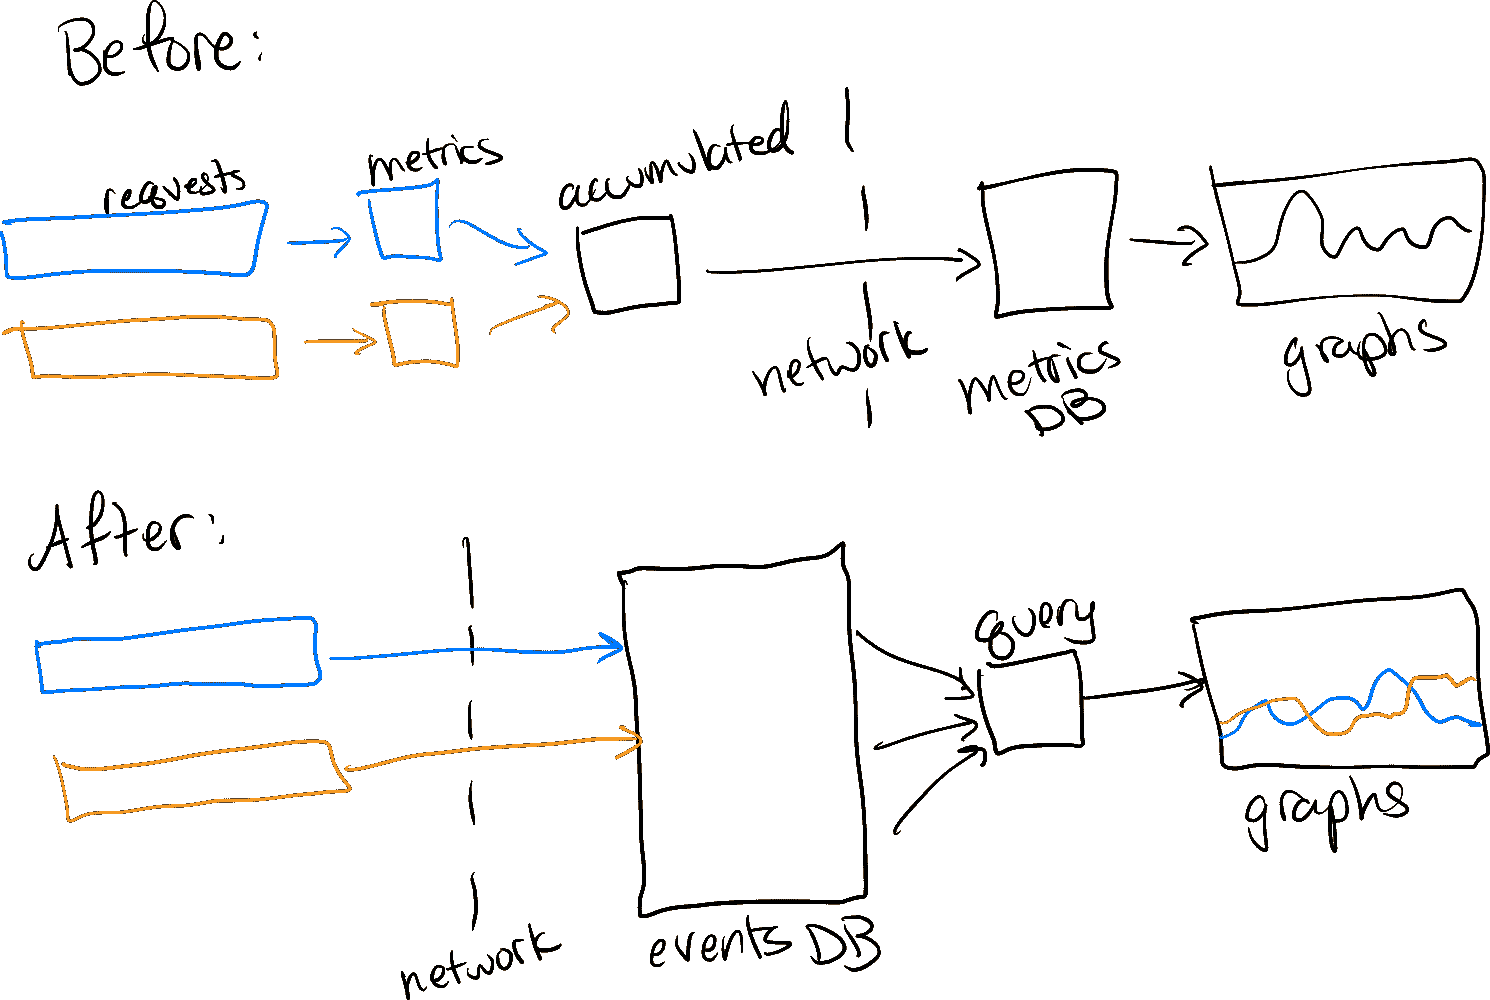 Before:
requests
metrics
accumulated
network
metrics
DB
graphs
After:
network
events DB
query
graphs